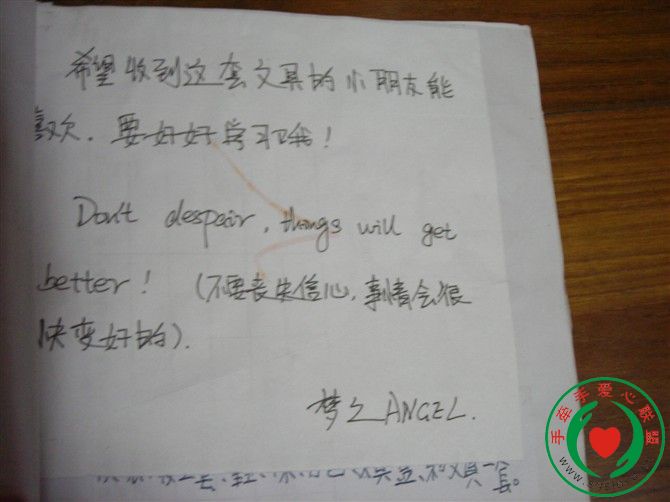 希望收到这套文具的小朋友能
喜欢，要好好学习哦！
Don't despair, things will get
better! (不要丧失信心，事情会很
快变好的).
梦之ANGEL.
手牵手爱心联盟